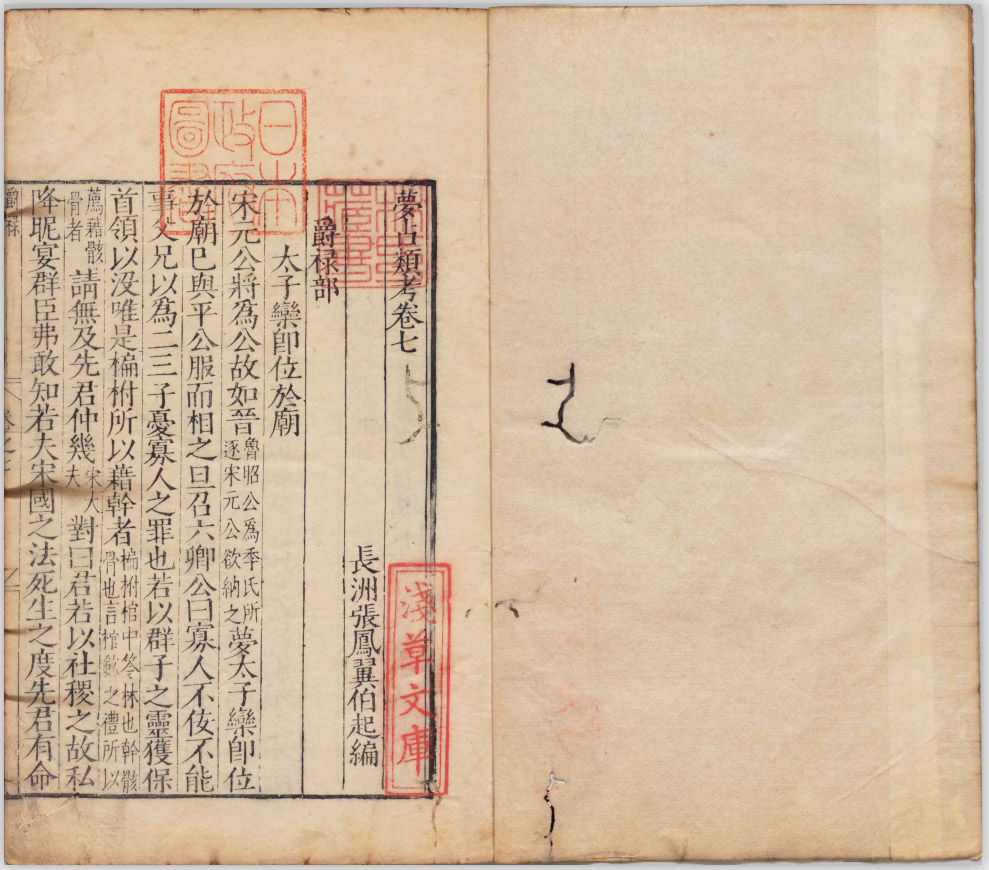 日本政府圖書
林氏藏書
夢占類考卷七
長洲張鳳翼伯起編
淺草文庫
爵禄部
太子欒卽位於廟
宋元公將爲公故如晉魯昭公爲季氏所逐宋元公欲納之夢太子欒卽位
於廟巳與平公服而相之旦召六卿公曰寡人不佞不能
事父兄以爲二三子憂寡人之罪也若以群子之靈獲保
首領以没唯是楄柎所以藉幹者楄柎棺中笭林也幹骸骨也言棺歛之禮所以
薦藉骸骨者請無及先君仲幾宋大夫對曰君若以社稷之故私
降昵宴群臣弗敢知若夫宋國之法死生之度先君有命
爵禄